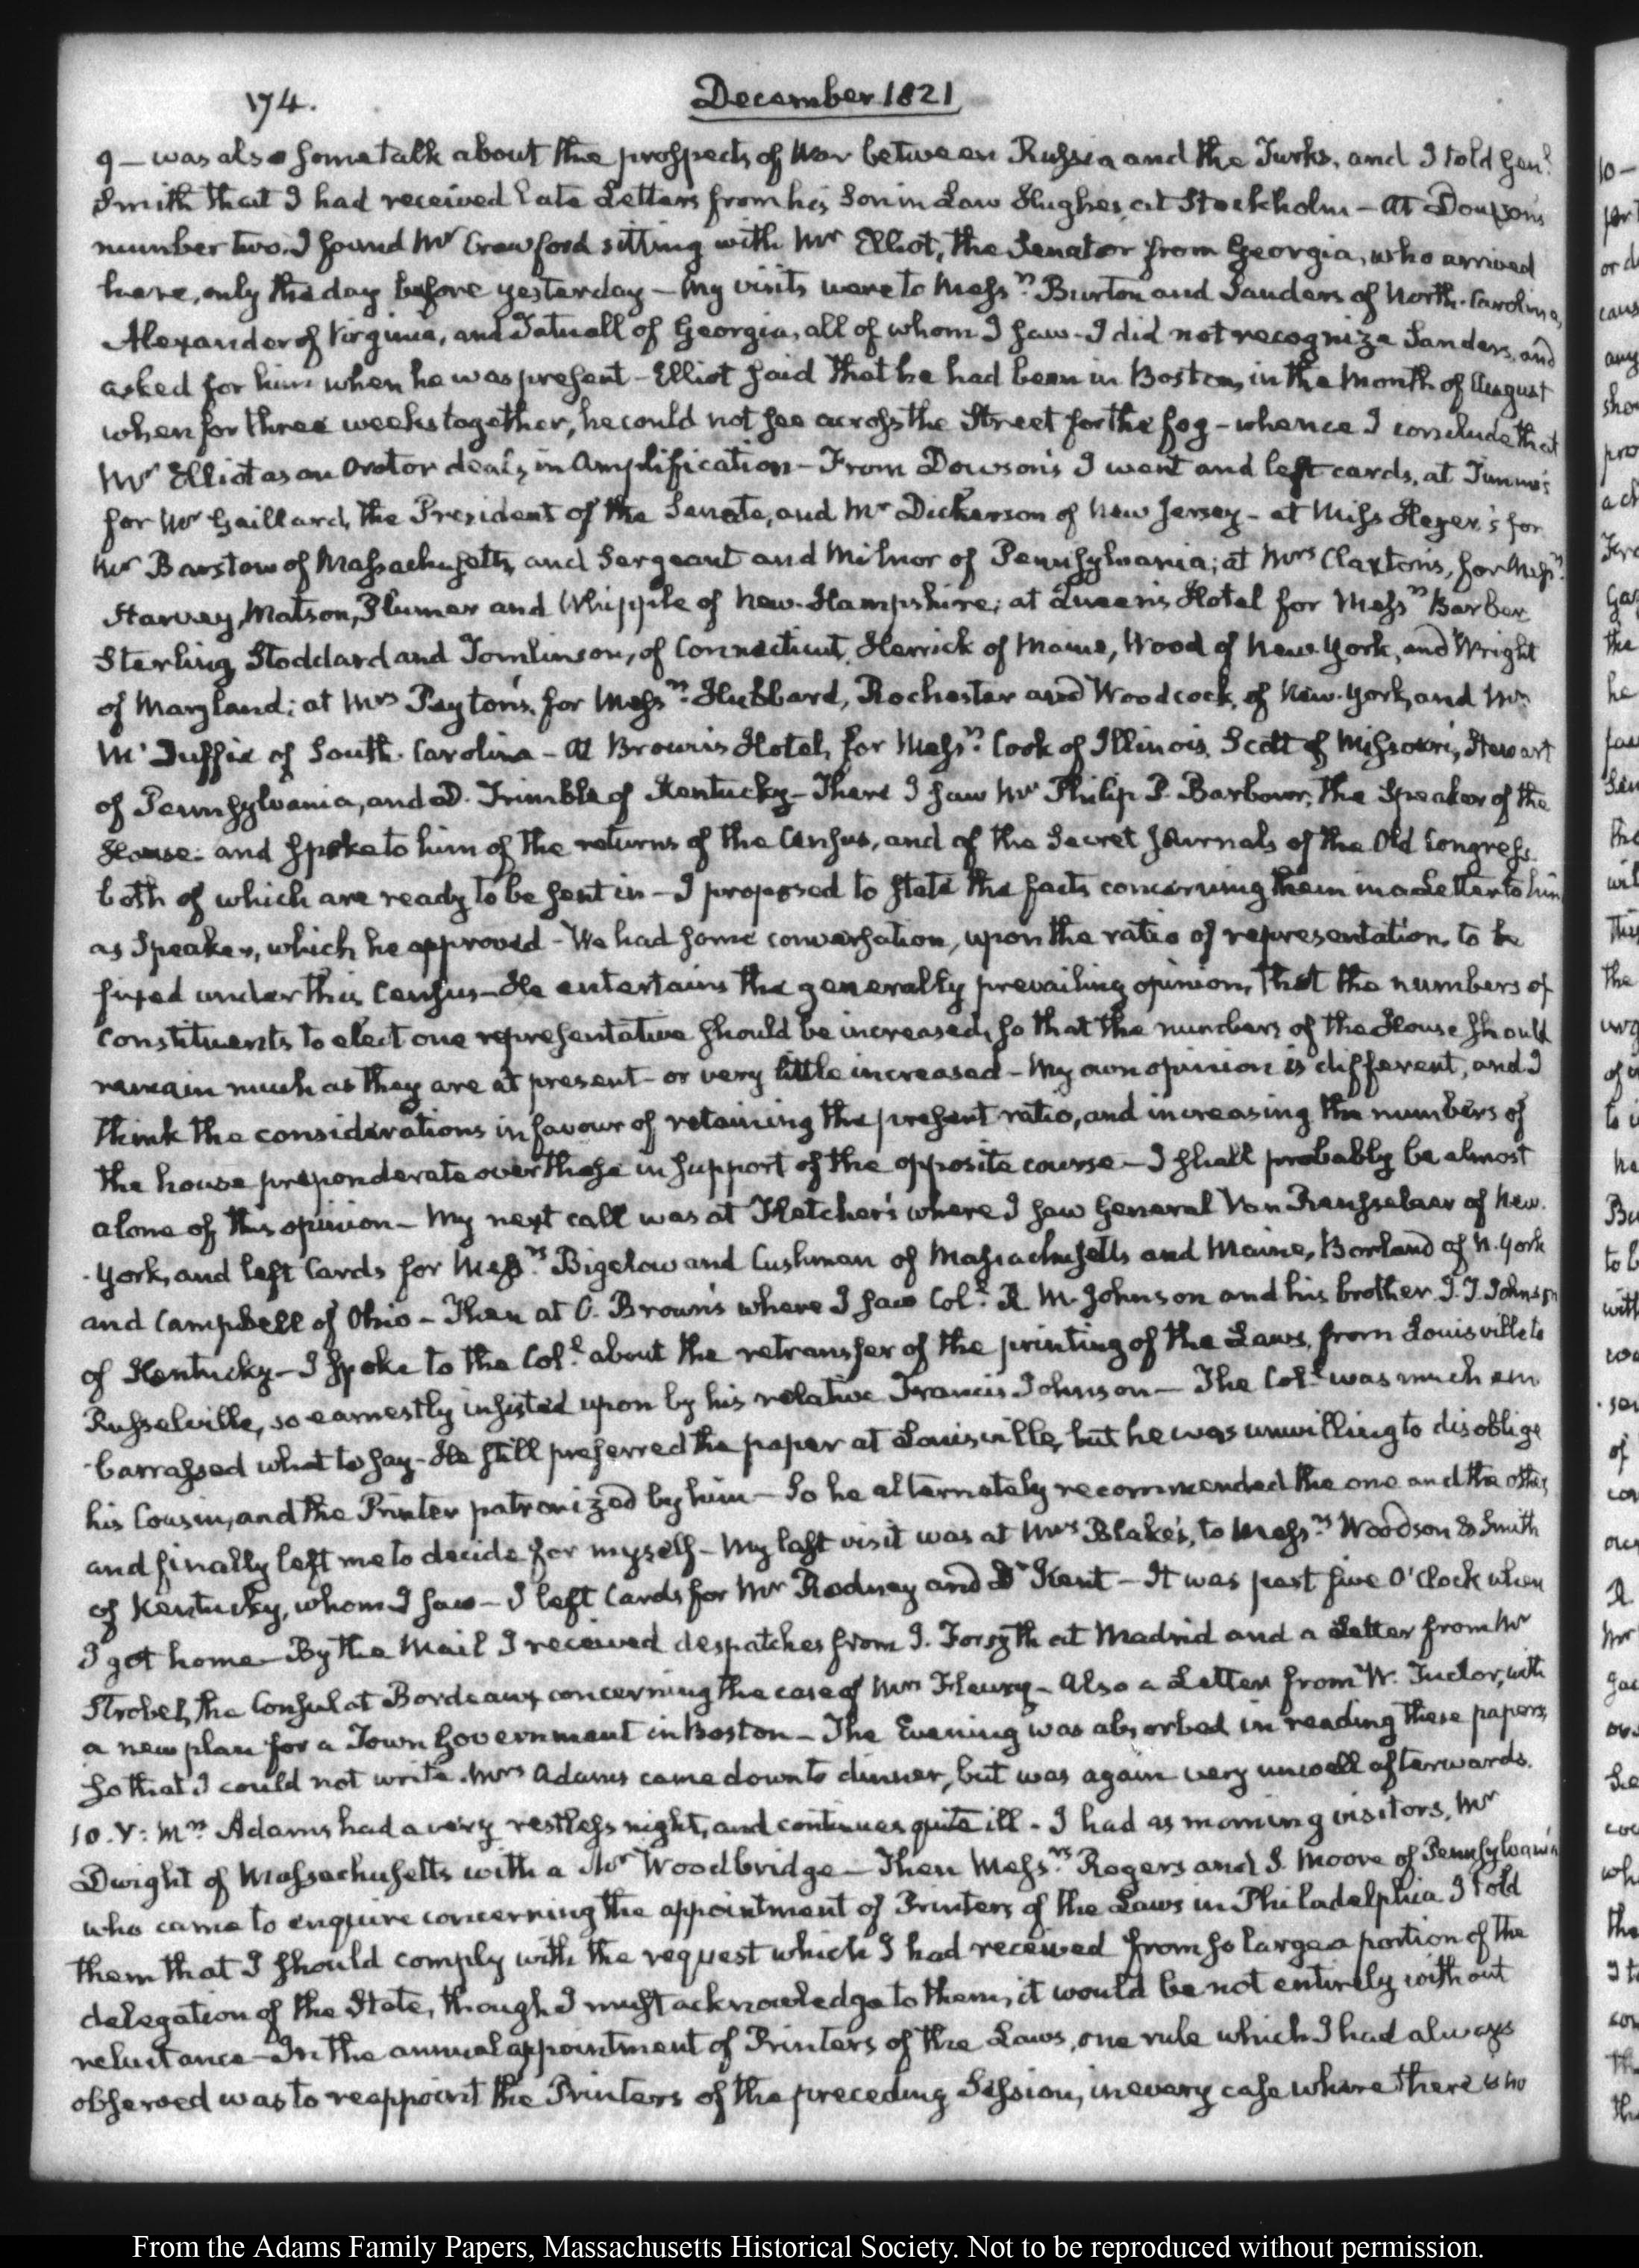 174.
December 1821
9 — was also some talk about the prospects of War between Russia and the Turks, and I told Genl.
Smith that I had received late Letters from his Son in Law Hughes, at Stockholm — At Dowson's
number two. I found Mr Crawford sitting with Mr Elliot, the Senator from Georgia, who arrived
here, only the day before yesterday — My visits were to Messrs. Burton and Sanders of North-Carolina,
Alexander of Virginia, and Tatnall of Georgia, all of whom I saw - I did not recognize Sanders, and
asked for him when he was present - Elliot said that he had been in Boston, in the Month of August
when for three weeks together, he could not see across the Street for the fog - whence I conclude that
Mr Elliot as an Orator deals in Amplification - From Dowson's I went and left cards, at Timms's
for Mr Gaillard, the President of the Senate, and Mr Dickerson of New Jersey - at Miss Heyer's for
Mr Barstow of Massachusetts, and Sergeant and Milnor of Pennsylvania; at Mrs Claxton's, for Messrs.
Harvey, Matson, Plumer and Whipple of New-Hampshire; at Queen's Hotel for Messrs Barber
Sterling, Stoddard and Tomlinson, of Connecticut, Herrick of Maine, Wood of New-York, and Wright
of Maryland; at Mrs Peyton's, for Messrs. Hubbard, Rochester and Woodcock, of New-York, and Mr
McDuffie of South-Carolina - At Brown's Hotel, for Messrs. Cook of Illinois, Scott of Missouri, Stewart
of Pennsylvania, and D. Trimble of Kentucky - There I saw Mr Philip P. Barbour, the Speaker of the
House: and spoke to him of the returns of the Census, and of the Secret Journals of the Old Congress
both of which are ready to be sent in — I proposed to state the facts concerning them in a Letter to him
as Speaker, which he approved - We had some conversation, upon the ratio of representation, to be
fixed under this Census - He entertains the generally prevailing opinion, that the numbers of
constituents to elect one representative should be increased, so that the numbers of the House should
remain much as they are at present - or very little increased - My own opinion is different, and I
think the considerations in favour of retaining the present ratio, and increasing the numbers of
the house preponderate over those in support of the opposite course - I shall probably be almost
alone of this opinion - My next call was at Fletcher's where I saw General Van Rensselaer of New-
-York, and left Cards for Messrs. Bigelow and Cushman of Massachusetts and Maine, Borland of N. York
and Campbell of Ohio - Then at O. Brown's where I saw Coll. R. M. Johnson and his brother J. T. Johnson
of Kentucky - I spoke to the Coll. about the retransfer of the printing of the Laws, from Louisville to
Russelville, so earnestly insisted upon by his relative Francis Johnson — The Coll. was much em
-barrassed what to say - He still preferred the paper at Louisville, but he was unwilling to disoblige
his Cousin, and the Printer patronized by him - So he alternately recommended the one and the other,
and finally left me to decide for myself - My last visit was at Mrs Blake's, to Messrs. Woodson & Smith
of Kentucky, whom I saw - I left Cards for Mr Rodney and Dr Kent - It was past five O'Clock when
I got home - By the Mail I received despatches from J. Forsyth at Madrid and a Letter from Mr
Strobel, the Consul at Bordeaux concerning the case of Mrs Fleury - Also a Letter from W. Tudor, with
a new plan for a Town Government in Boston - The Evening was absorbed in reading these papers,
so that I could not write. Mrs Adams came down to dinner, but was again very unwell afterwards.
10. V: Mrs Adams had a very restless night, and continues quite ill - I had as morning visitors, Mr
Dwight of Massachusetts with a Mr Woodbridge — Then Messrs. Rogers and S. Moore of Pennsylvania
who came to enquire concerning the appointment of Printers of the Laws in Philadelphia. I told
them that I should comply with the request which I had received from so large a portion of the
delegation of the State, though I must acknowledge to them, it would be not entirely without
reluctance - In the annual appointment of Printers of the Laws, one rule which I had always
observed was to reappoint the Printers of the preceding Session, in every case where there is no
From the Adams Family Papers, Massachusetts Historical Society. Not to be reproduced without permission.